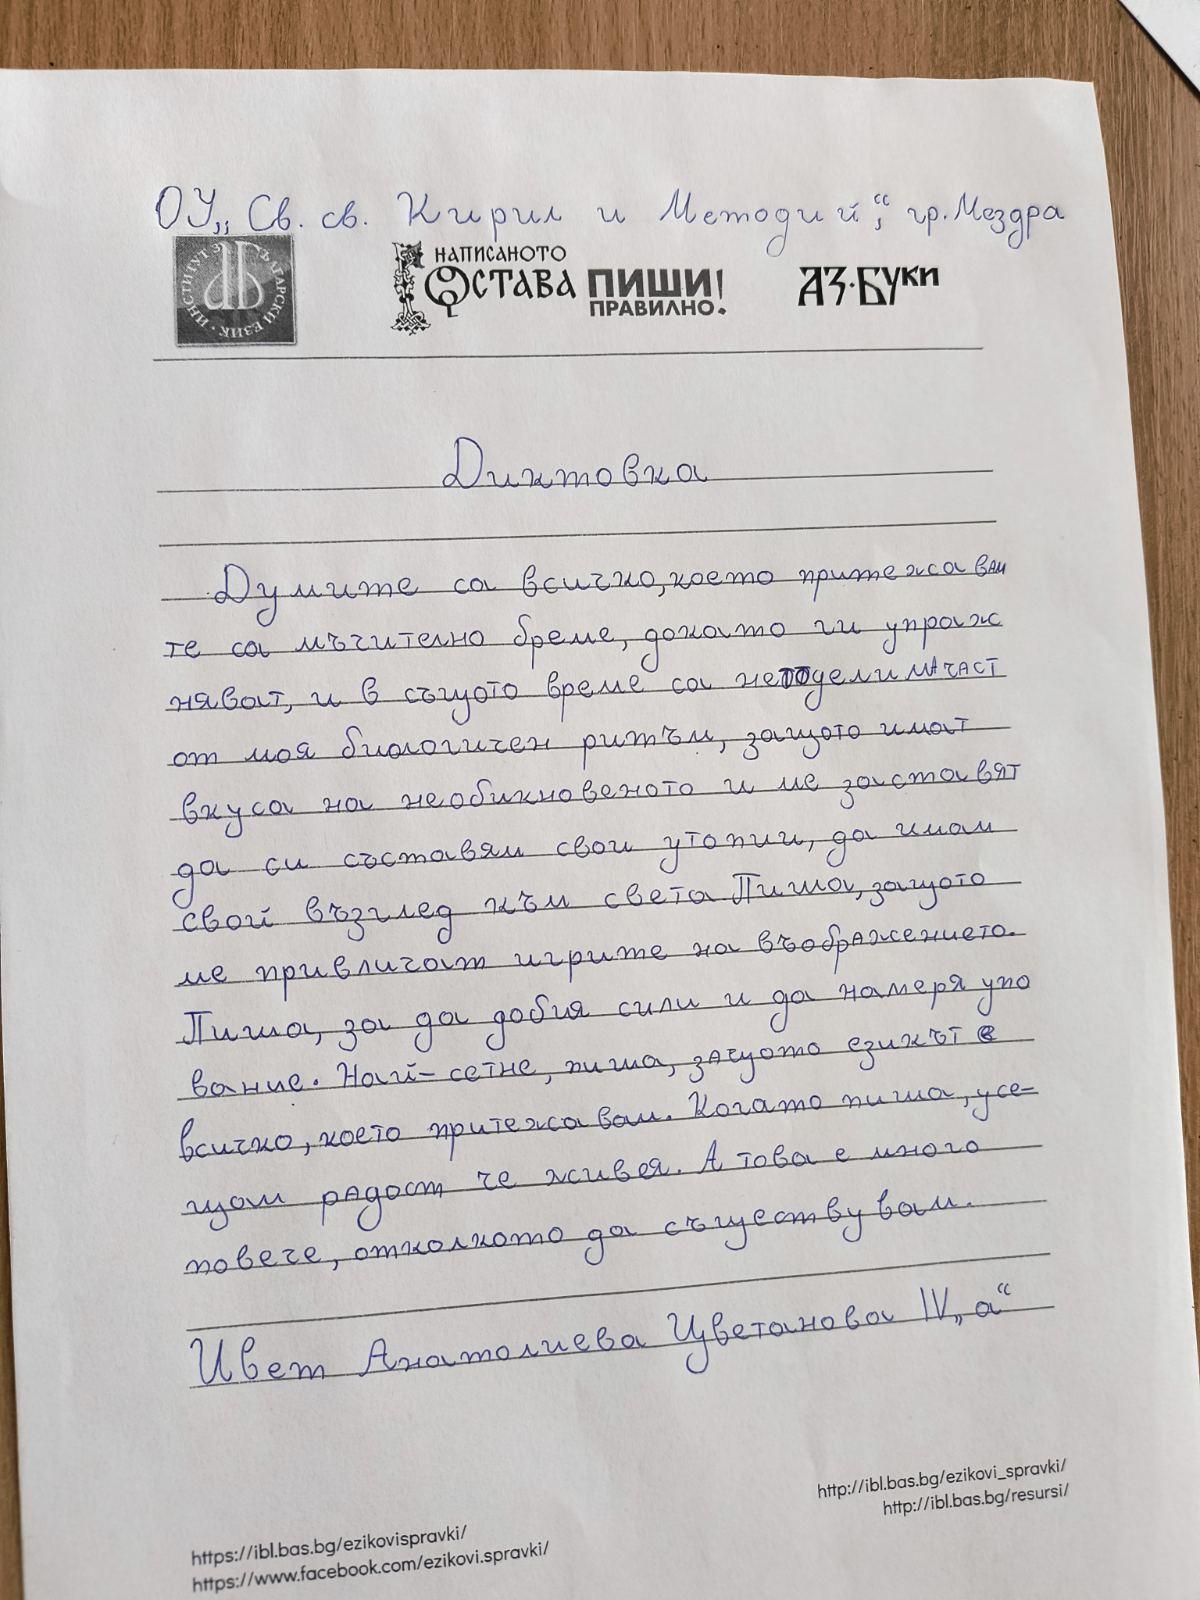 ОУ „Св. св. Кирил и Методий“, гр. Мездра
ИНСТИТУТ ЗА БЪЛГАРСКИ ЕЗИК
НАПИСАНОТО
ОСТАВА ПИШИ!
ПРАВИЛНО.
АЗ·БУКИ
Диктовка
Думите са всичко, което притежавам
те са мъчително бреме, докато ги упраж
няват, и в същото време са неподелима част
от моя биологичен ритъм, защото имат
вкуса на необикновеното и ме заставят
да си съставям свои утопии, да имам
свой възглед към света Пиша, защото
ме привличат игрите на въображението.
Пиша, за да добия сили и да намеря упо
вание. Най-сетне, пиша, защото езикът е
всичко, което притежавам. Когато пиша, усе-
щам радост че живея. А това е много
повече, отколкото да съществувам.
Цвет Анатолиева Цветанова IV „а“
http://ibl.bas.bg/ezikovi_spravki/
http://ibl.bas.bg/resursi/
https://ibl.bas.bg/ezikovispravki/
https://www.facebook.com/ezikovi.spravki/